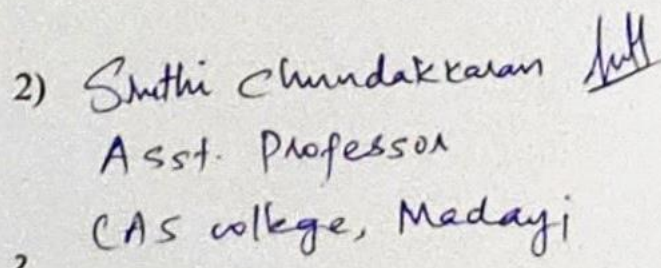 2) Sruthi Chundakkaran
Asst. Professor
CAS college, Madayi